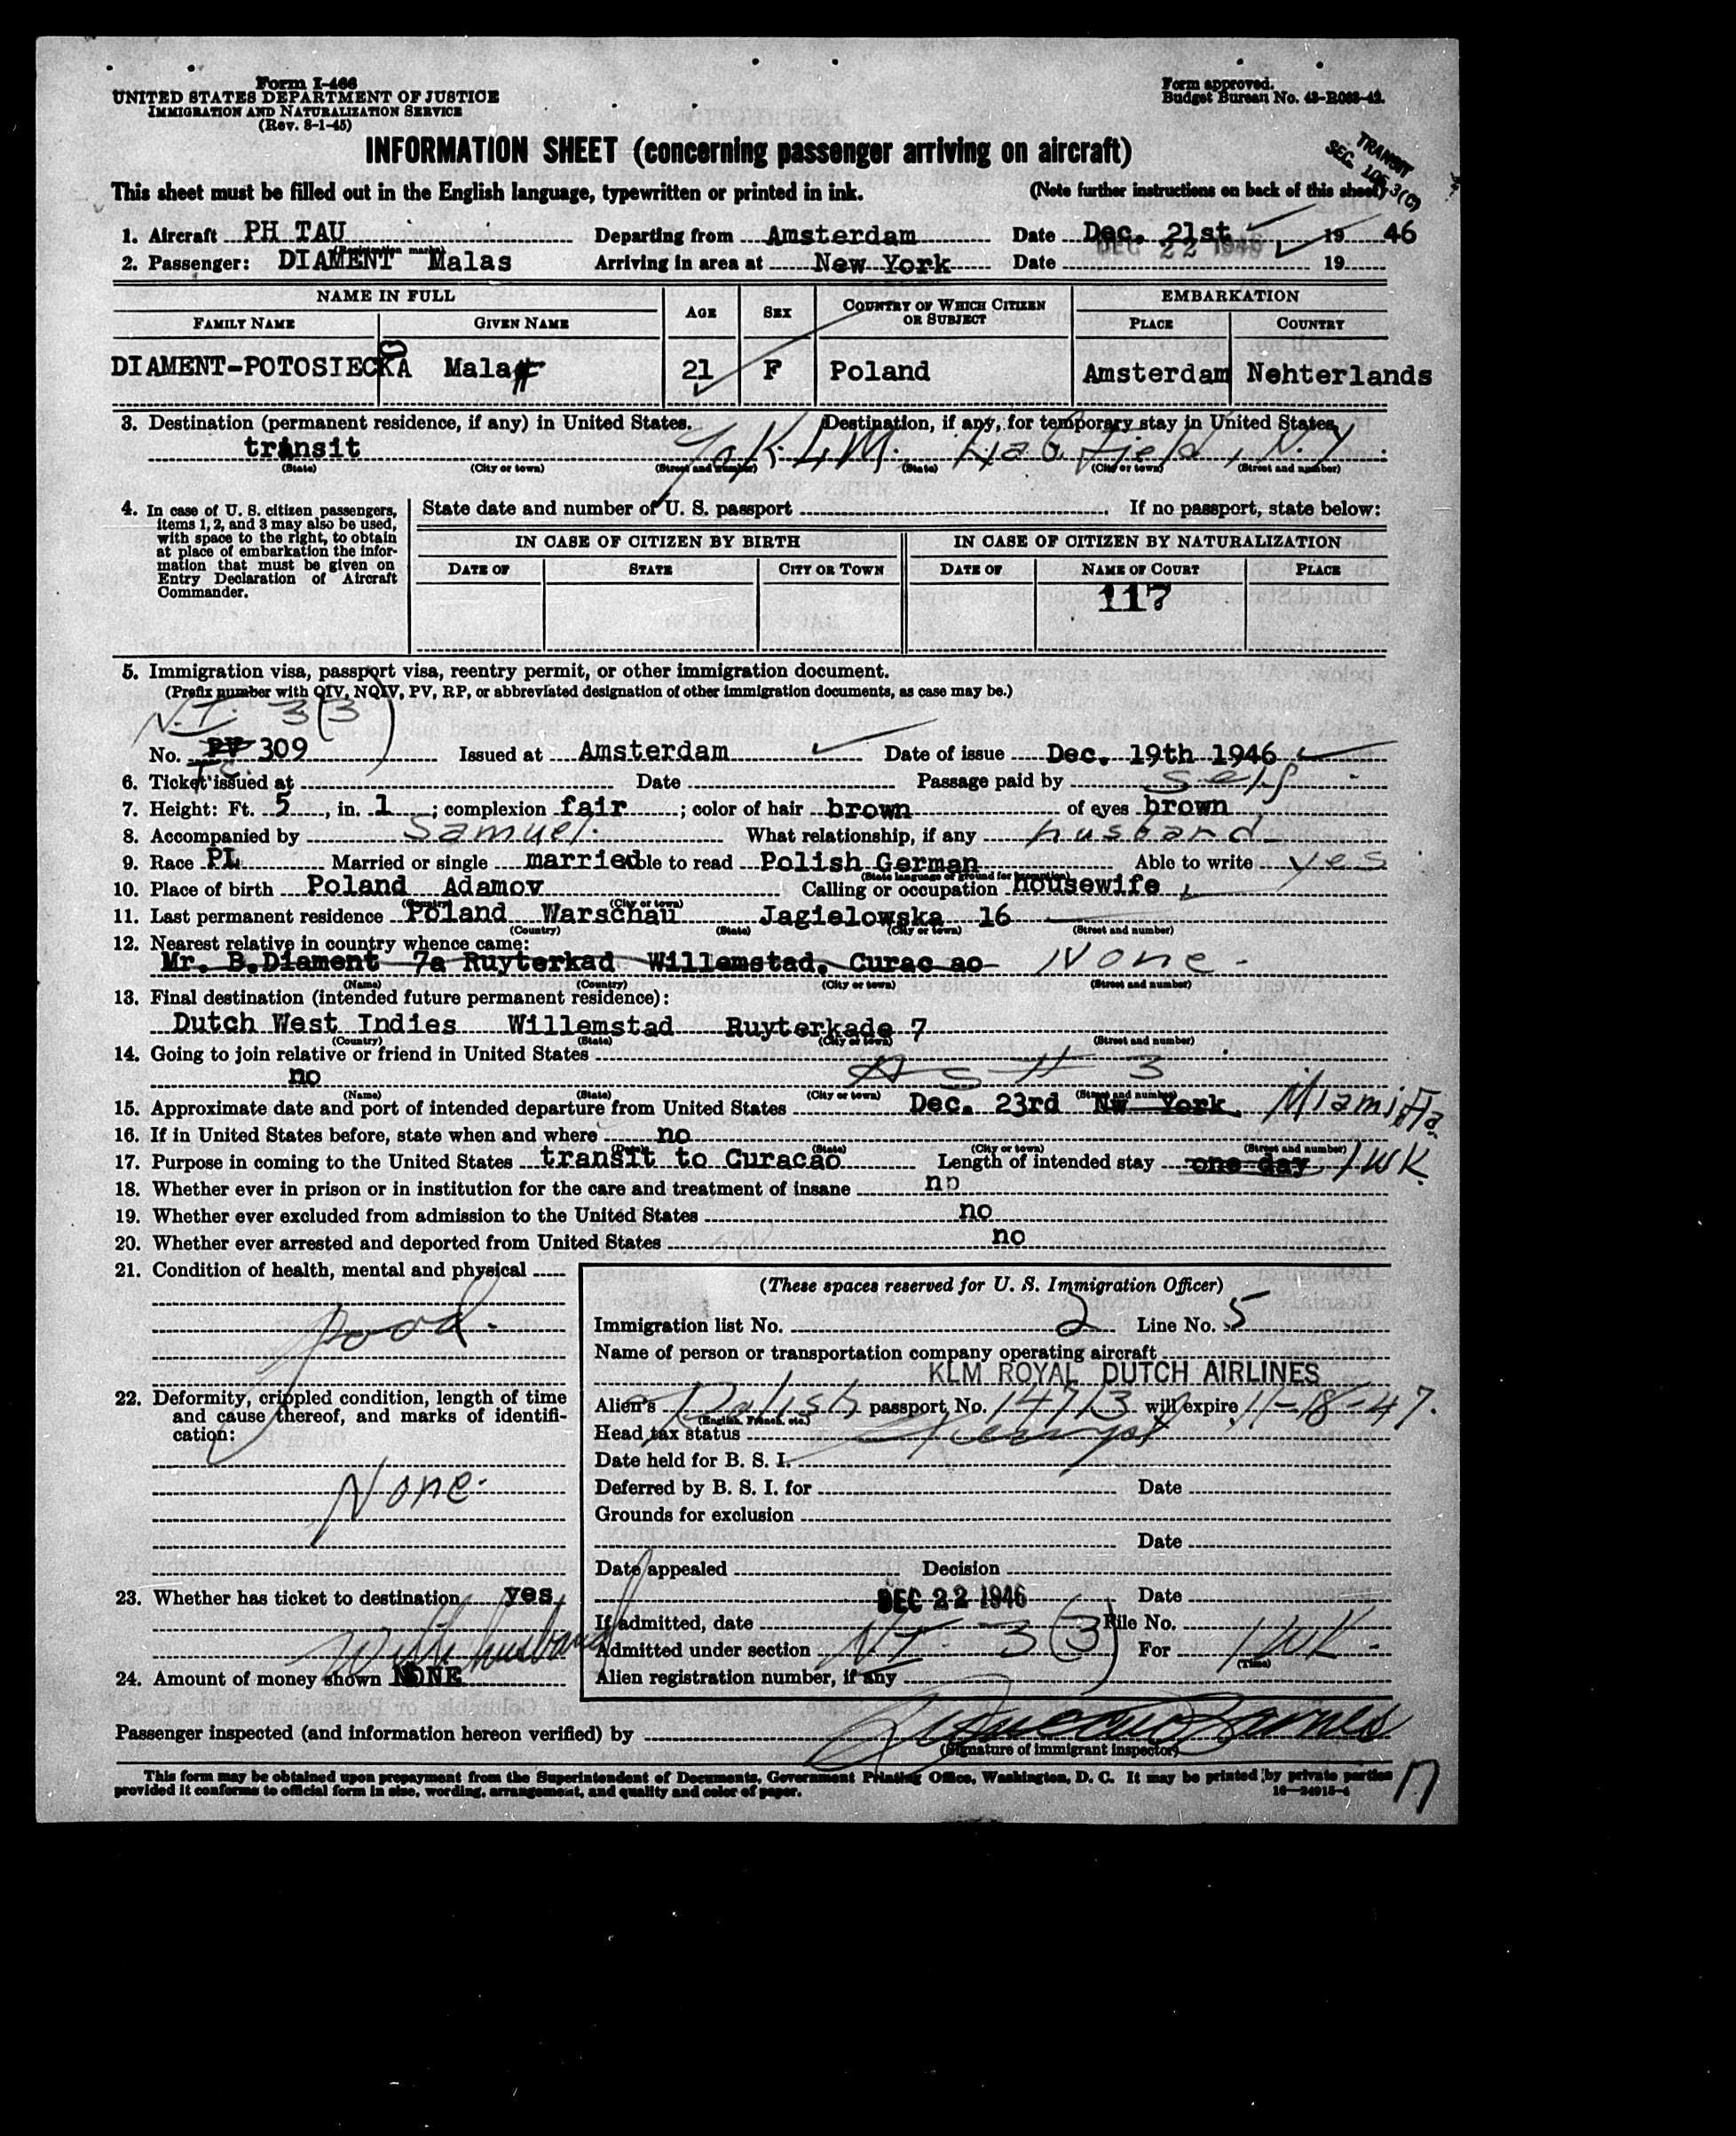 Form I-466
UNITED STATES DEPARTMENT OF JUSTICE
IMMIGRATION AND NATURALIZATION SERVICE
(Rev. 8-1-45)
Form approved.
Budget Bureau No.
INFORMATION SHEET (concerning passenger arriving on aircraft)
TRANSIT
SEC. 105.3(C)
This sheet must be filled out in the English language, typewritten or printed in ink. (Note further instructions on back of this sheet)
1. Aircraft PH TAU Departing from Amsterdam Date Dec. 21st 19 46
(Registration marks) DEC 22 1946
2. Passenger: DIAMENT Malas Arriving in area at New York Date 19
NAME IN FULL AGE SEX COUNTRY OF WHICH CITIZEN OR SUBJECT EMBARKATION
FAMILY NAME GIVEN NAME PLACE COUNTRY
DIAMENT-POTOSIECKA Mala 21 F Poland Amsterdam Nehterlands
3. Destination (permanent residence, if any) in United States. Destination, if any, for temporary stay in United States
transit K.L.M. Field, N.Y
(State) (City or town) (Street and number) (State) (City or town) (Street and number)
4. In case of U. S. citizen passengers, items 1, 2, and 3 may also be used, with space to the right, to obtain at place of embarkation the information that must be given on Entry Declaration of Aircraft Commander.
State date and number of U. S. passport If no passport, state below:
IN CASE OF CITIZEN BY BIRTH IN CASE OF CITIZEN BY NATURALIZATION
DATE OF STATE CITY OR TOWN DATE OF NAME OF COURT PLACE
117
5. Immigration visa, passport visa, reentry permit, or other immigration document.
(Prefix number with QIV, NQIV, PV, RP, or abbreviated designation of other immigration documents, as case may be.)
N.I. 3(3)
No. PV 309 Issued at Amsterdam Date of issue Dec. 19th 1946
T.C.
6. Ticket issued at Date Passage paid by self
7. Height: Ft. 5, in. 1; complexion fair; color of hair brown of eyes brown
8. Accompanied by Samuel. What relationship, if any husband
9. Race PL Married or single married Able to read Polish German Able to write yes
(State language or ground for exemption)
10. Place of birth Poland Adamov Calling or occupation housewife
(Country) (City or town)
11. Last permanent residence Poland Warschau Jagielowska 16
(Country) (State) (City or town) (Street and number)
12. Nearest relative in country whence came:
Mr. B.Diament 7a Ruyterkad Willemstad. Curac ao None.
(Name) (Country) (City or town) (Street and number)
13. Final destination (intended future permanent residence):
Dutch West Indies Willemstad Ruyterkade 7
(Country) (State) (City or town) (Street and number)
14. Going to join relative or friend in United States
no As # 3
(Name) (State) (City or town) (Street and number)
15. Approximate date and port of intended departure from United States Dec. 23rd Nw York. Miami, Fla.
16. If in United States before, state when and where no
(Date) (State) (City or town) (Street and number)
17. Purpose in coming to the United States transit to Curacao Length of intended stay one day 1 WK.
18. Whether ever in prison or in institution for the care and treatment of insane no
19. Whether ever excluded from admission to the United States no
20. Whether ever arrested and deported from United States no
21. Condition of health, mental and physical
Good.
22. Deformity, crippled condition, length of time and cause thereof, and marks of identification:
None.
23. Whether has ticket to destination yes
With husband
24. Amount of money shown NONE
(These spaces reserved for U. S. Immigration Officer)
Immigration list No. 2 Line No. 5
Name of person or transportation company operating aircraft
KLM ROYAL DUTCH AIRLINES
Alien's Polish passport No. 14713 will expire 11-18-47.
(English, French, etc.)
Head tax status Exempt
Date held for B. S. I.
Deferred by B. S. I. for Date
Grounds for exclusion
Date
Date appealed Decision
DEC 22 1946 Date
If admitted, date File No.
Admitted under section N.I. 3(3) For 1 WK.
(Time)
Alien registration number, if any
Passenger inspected (and information hereon verified) by Barnes
(Signature of immigrant inspector)
This form may be obtained upon prepayment from the Superintendent of Documents, Government Printing Office, Washington, D. C. It may be printed by private parties
provided it conforms to official form in size, wording, arrangement, and quality and color of paper. 16—24915-4
17